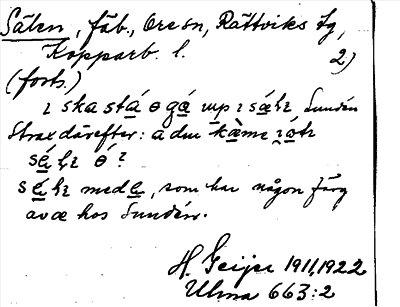 Sälen, fäb., Ore sn, Rättviks tg,
Kopparb. l. 2)
(forts.)
ɿ ska stá o gá up ɿ sǽlɿ, Sundén
Strax därefter: a du kæme
sélɿ ó?
sélɿ med e, som har någon färg
av æ hos Sundén.
H. Geijer 1911, 1922
Ulma 663:2